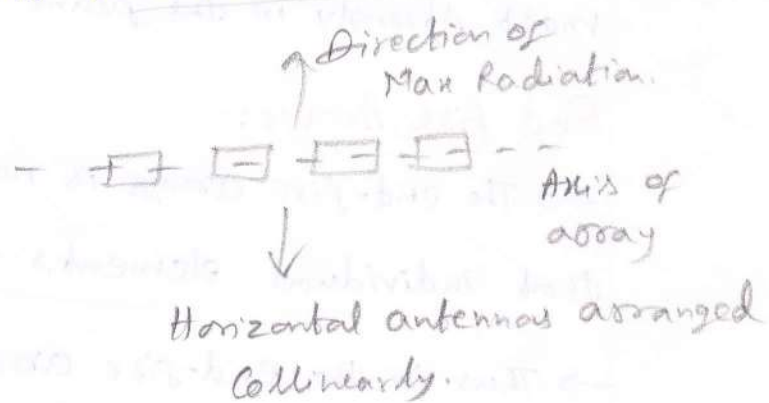 Direction of
Max Radiation.
Axis of
array
Horizontal antennas arranged
Collinearly.